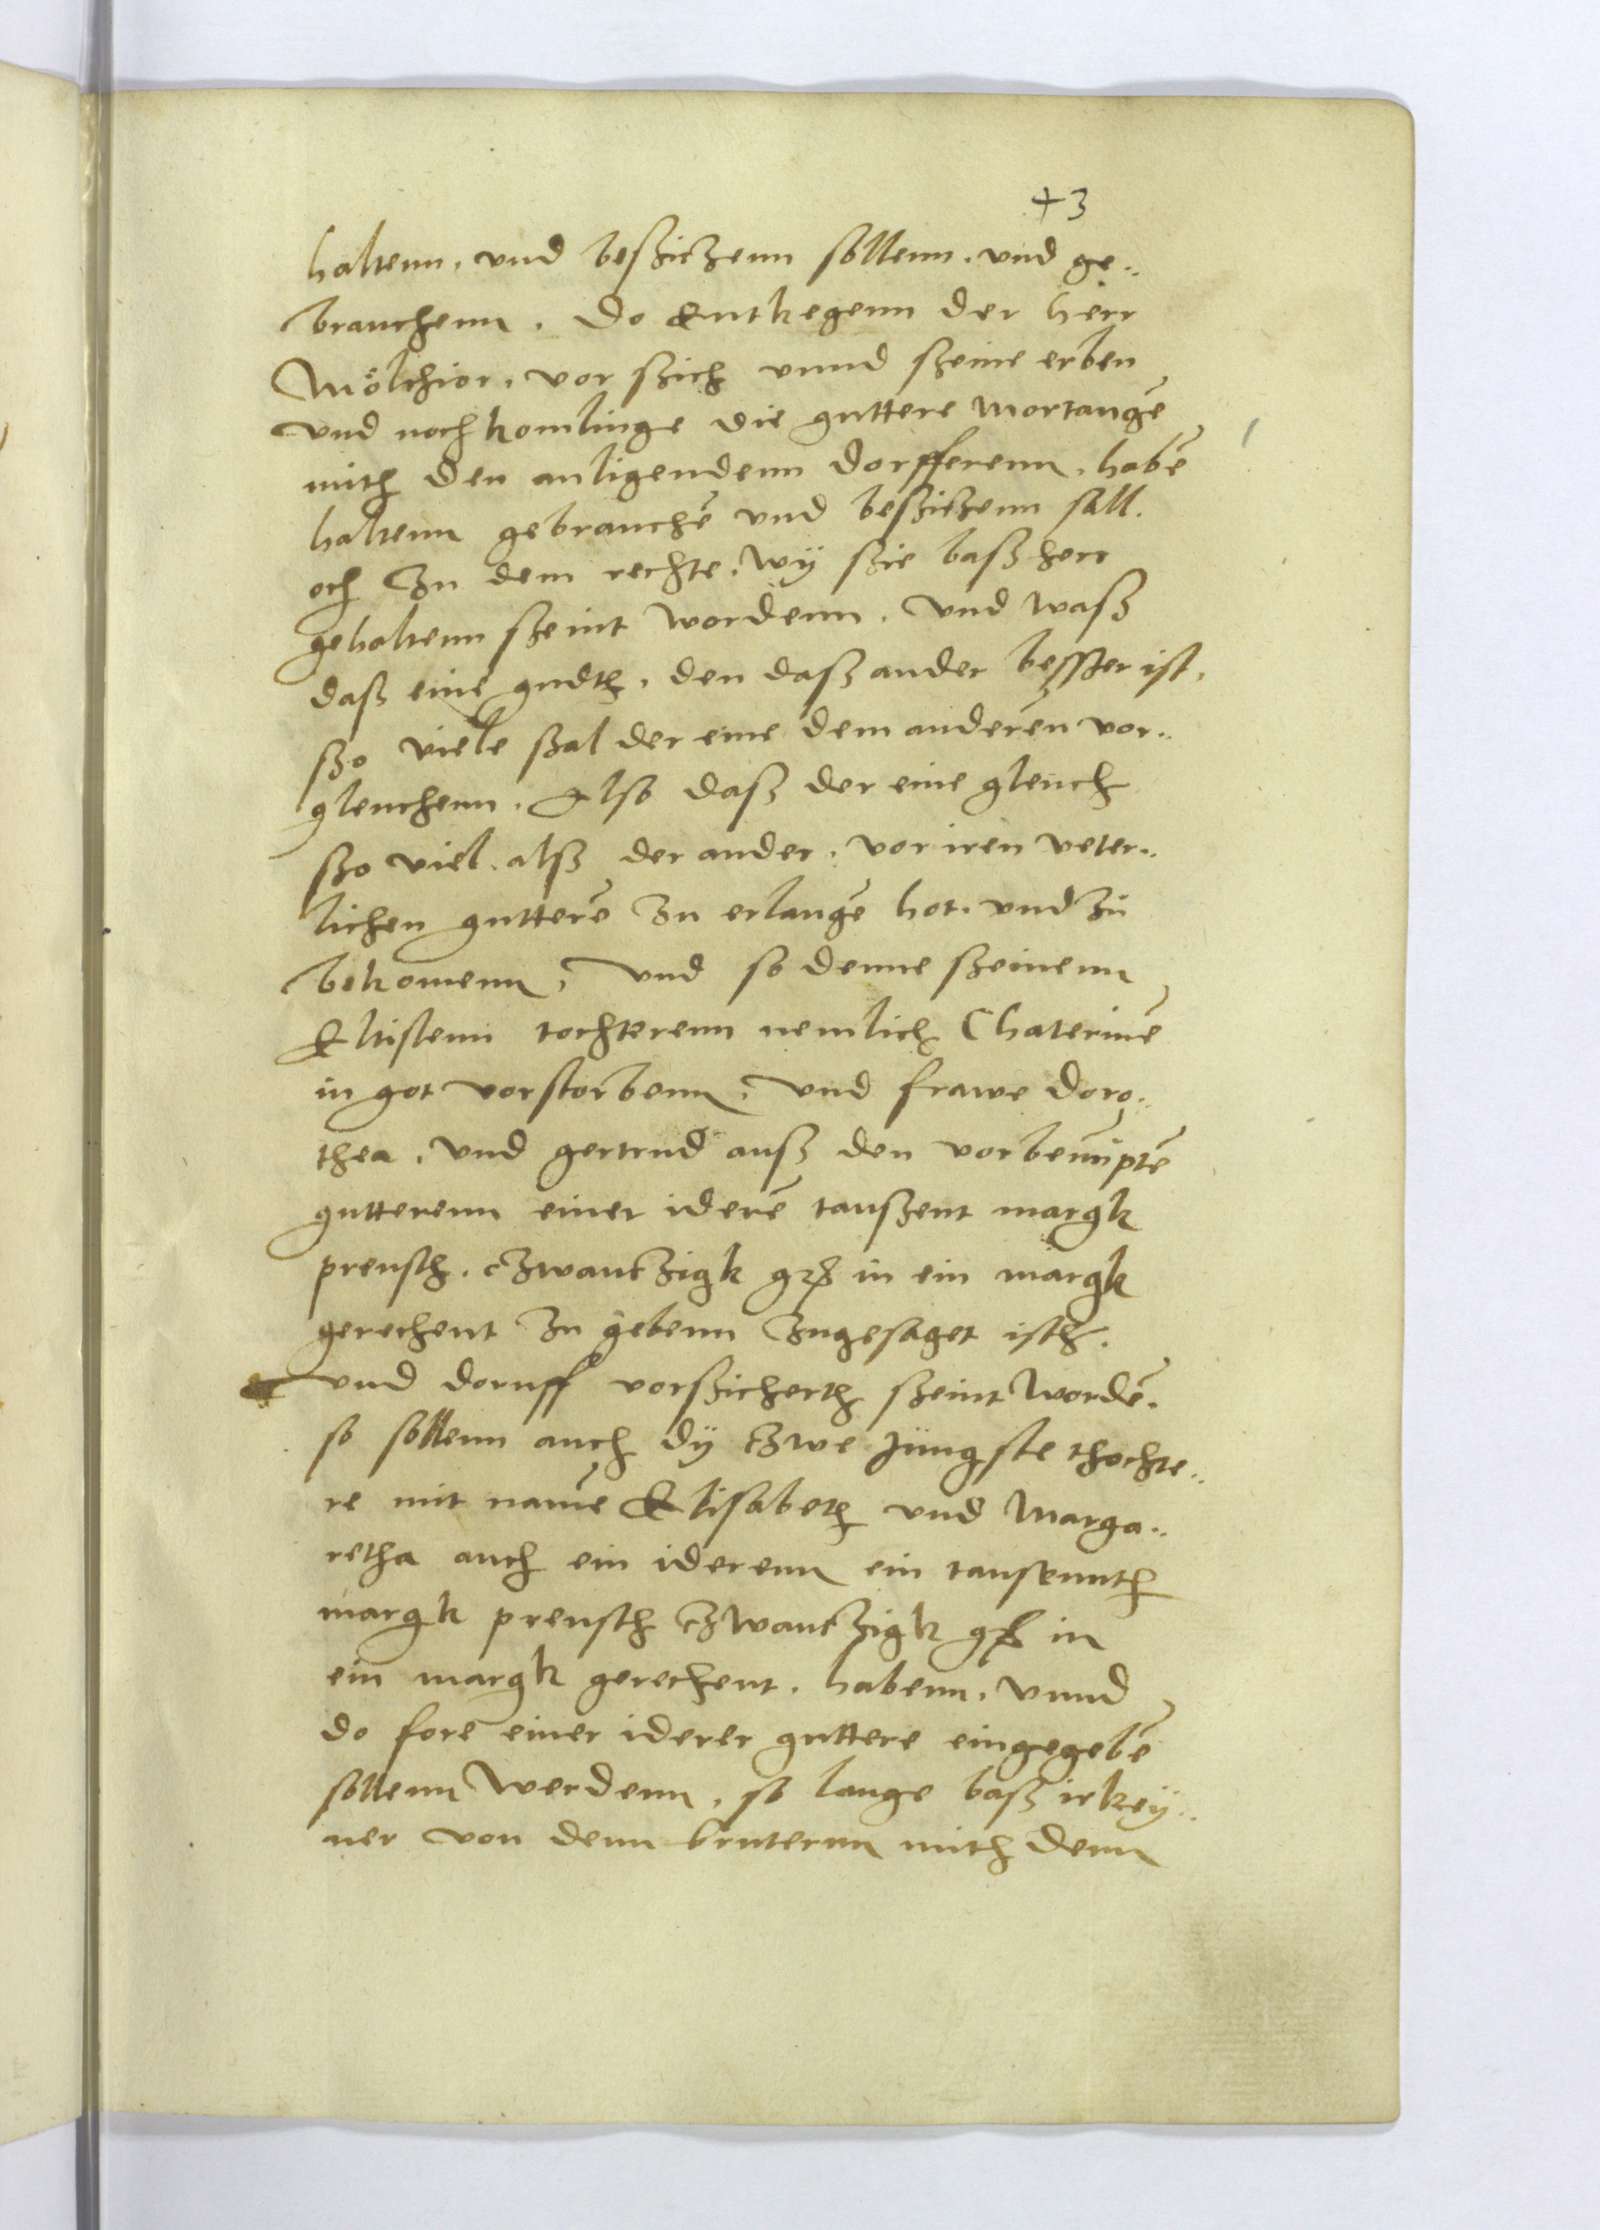 +3
haltenn. vnd beßiczenn sollenn. vnd ge..
brauchenn. Do Entkegenn der herr
Mölchior. vor ßich vnnd ßeine erben
vnd nochkomlinge die guttere Mortangē
mith den anligendenn dorfferenn. habē
haltenn gebrauchē vnd beßiczenn sall.
och zu dem rechte. wÿ ßie baßherr
gehaltenn ßeint wordenn. Vnd waß
daß eine gudth. den daß ander beßßer ist.
ßo viele ßal der eine dem anderen vor..
gleuchenn. Also daß der eine gleuch
ßo viel. alß der ander. vor iren veter..
lichen gutterē zu erlangē hot. vnd zu
bekomenn, Vnd so denne ßeinenn
Eltistenn tochterenn nemlich Chaterinē
in got vorstorbenn, Vnd frawe Doro..
thea. Vnd gertrud auß den vorbenūptē
gutterenn einer iderē taußent margk
preusch. czwanczigk gr̃ in ein margk
gerechent zu gebenn zugesaget isth.
vnd doruff vorßicherth ßeint wordē.
so sollenn auch dÿ czwe Jüngste thochte..
re mit namē Elisabeth vnd Marga..
retha auch ein iderenn ein tausenntth
margk preusch czwanczigk gr̃ in
ein margk gerechent. habenn. Vnnd
do fore einer iderer guttere eingegebē
sollenn werdenn. so lange baß irkeÿ..
ner von denn bruternn mith denn